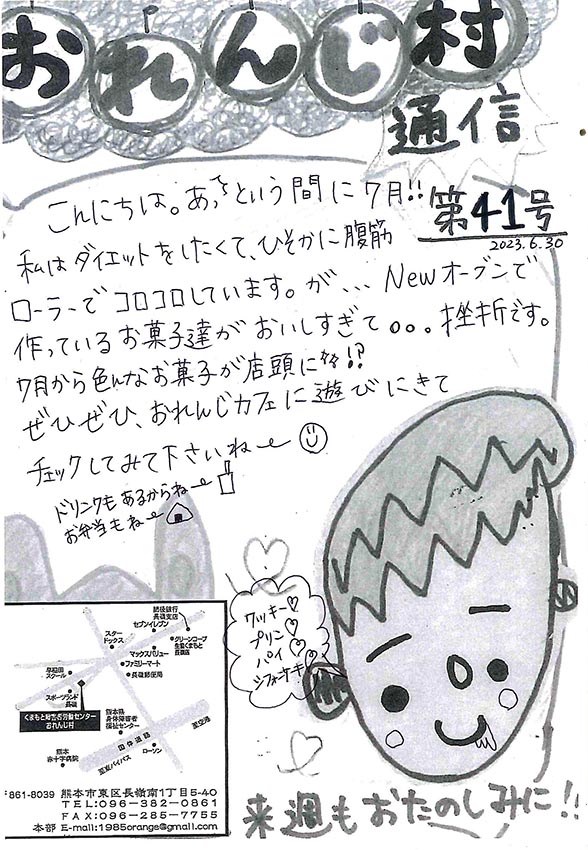 おれんじ村
通信
第41号
2023.6.30
こんにちは。あっという間に7月!!
私はダイエットをしたくて、ひそかに腹筋
ローラーでコロコロしています。が、、、Newオーブンで
作っているお菓子達がおいしすぎて。。。挫折です。
7月から色んなお菓子が店頭に!?
ぜひぜひ、おれんじカフェに遊びにきて
チェックしてみて下さいね〜
ドリンクもあるからね〜
お弁当もね〜
クッキー♡
プリン♡
パイ♡
シフォンケーキ
肥後銀行
長嶺支店
セブンイレブン
スター
ドックス
グリーンコープ
生協くまもと
長嶺店
マックスバリュー
ファミリーマート
長嶺郵便局
早稲田
スクール
スポーツランド
長嶺
くまもと障害者労働センター
おれんじ村
熊本県
身体障害者
福祉センター
国体道路
至空港
熊本
赤十字病院
至東バイパス
ローソン
〒861-8039 熊本市東区長嶺南1丁目5-40
TEL:096-382-0861
FAX:096-285-7755
本部 E-mail:1985orange@gmail.com
来週もおたのしみに!!